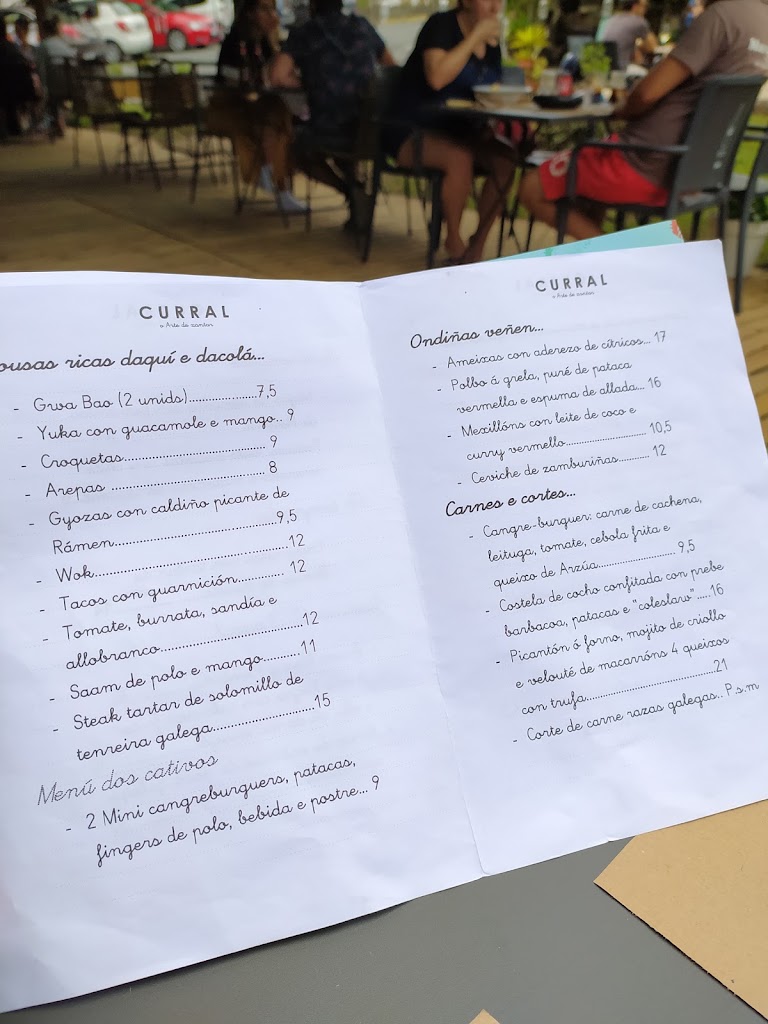 CURRAL
o Arte de xantar
ousas ricas daquí e dacolá...
- Gwa Bao (2 unids)....................7,5
- Yuka con guacamole e mango.. 9
- Croquetas.................................... 9
- Arepas ....................................... 8
- Gyozas con caldiño picante de
Rámen.........................................9,5
- Wok..................................................12
- Tacos con guarnición............ 12
- Tomate, burrata, sandía e
allobranco....................................12
- Saam de polo e mango..........11
- Steak tartar de solomillo de
tenreira galega..........................15
Menú dos cativos
- 2 Mini cangreburguers, patacas,
fingers de polo, bebida e postre... 9
CURRAL
o Arte de xantar
Ondiñas veñen...
- Ameixas con aderezo de cítricos... 17
- Polbo á grela, puré de pataca
vermella e espuma de allada... 16
- Mexillóns con leite de coco e
curry vermello......................... 10,5
- Ceviche de zamburiñas.......... 12
Carnes e cortes...
- Cangre-burguer: carne de cachena,
leituga, tomate, cebola frita e
queixo de Arzúa........................ 9,5
- Costela de cocho confitada con prebe
barbacoa, patacas e "coleslaw".....16
- Picantón ó forno, mojito de criollo
e velouté de macarróns 4 queixos
con trufa.......................................21
- Corte de carne razas galegas.. P.s.m